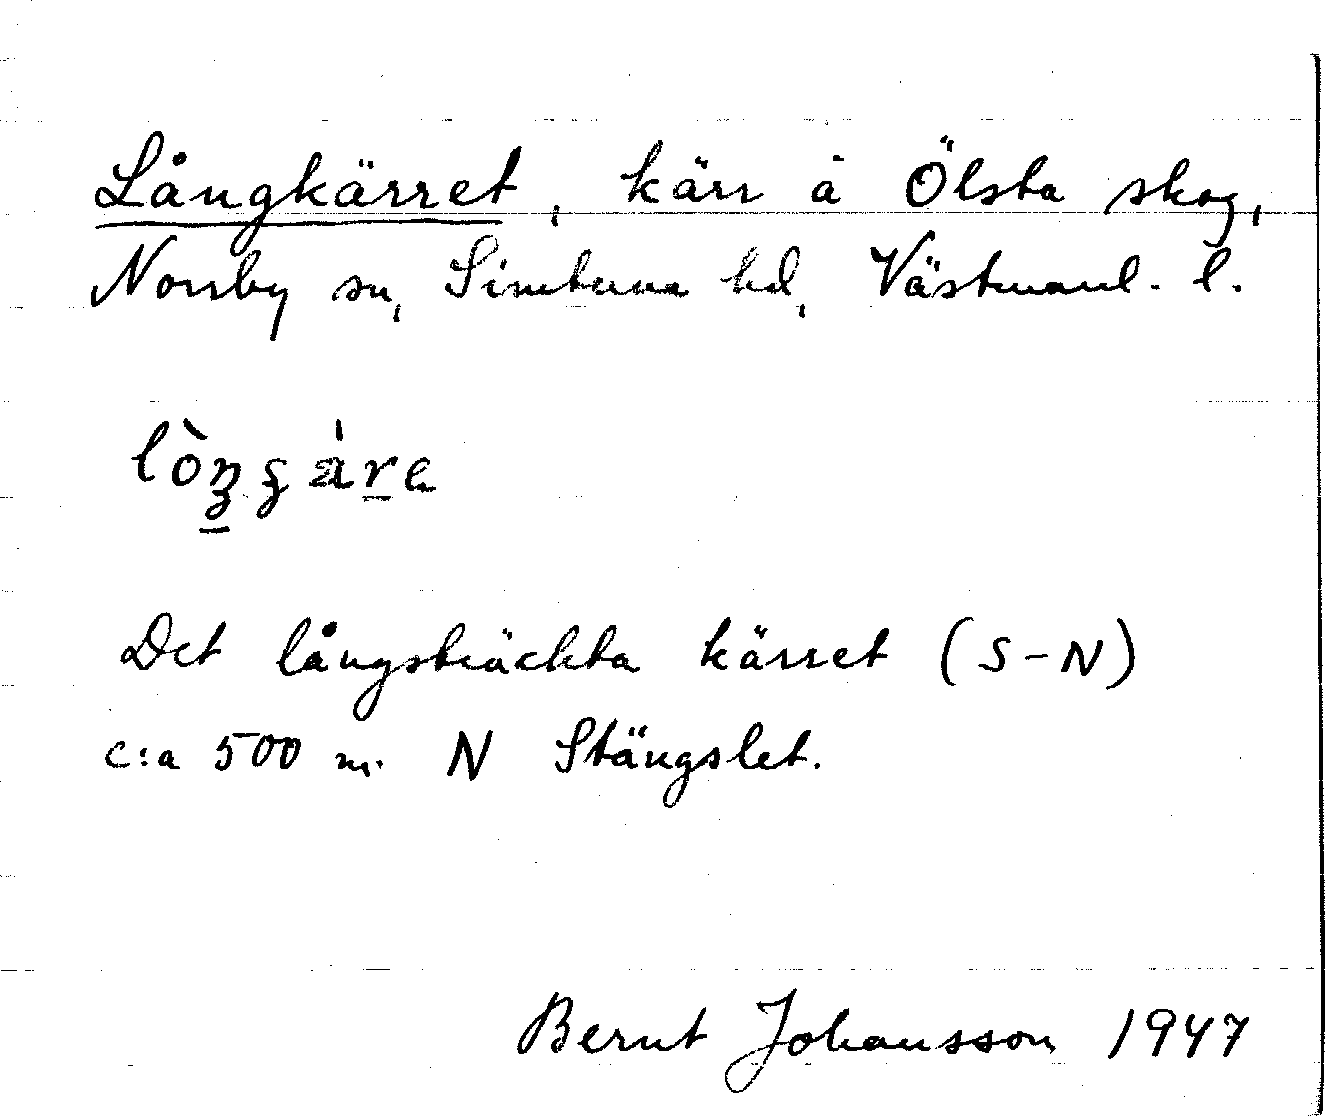 Långkärret, kärr å Ölsta skog,
Norrby sn, Simtuna hd, Västmanl. l.
Det långsträckta kärret (S-N)
c:a 500 m. N Stängslet.
Bernt Johansson 1947